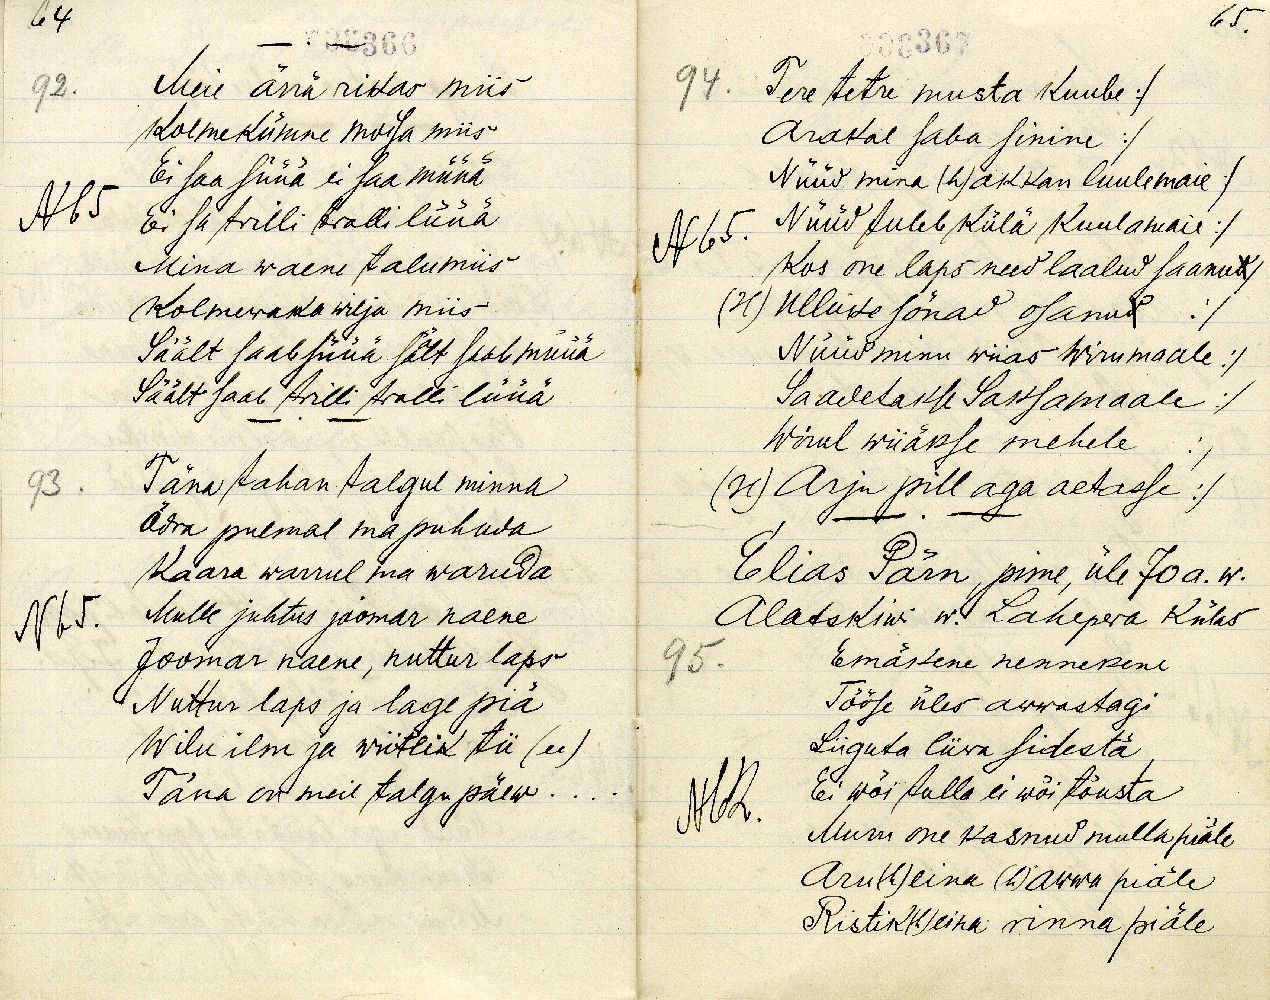 64
366
92.
Meie ärä rikas miis
Kolmekümne moisa miis
Ei saa süüä ei saa müüä
Ei sa trilli tralli lüüä
Mina waene talumiis
Kolmewaka wilja miis
Säält saab süüä sält saab müüä
Säält saab trilli tralli lüüä
93.
Täna tahan talgul minna
Ädra pulmal ma puhuda
Kaara warrul ma waruda
Mulle juhtus joomar naene
Joomar naene, nuttur laps
Nuttur laps ja lage piä
Wilu ilm ja wiitlik tii (ee)
Täna on meil talgu päew . . . .
65.
367
94.
Tere tetre musta kuube :/
Arakal saba sinine :/
Nüüd mina (h)akkan luulemaie :/
Nüüd tuleb külä kuulamaie :/
Kos one laps need laalud saanud :/
(H) Ulluke sõnad osanud :/
Nüüd minu wiias Wirumaale :/
Saadetakse Saksamaale :/
Wõrul wiiäkse mehele :/
(H) Arju pill aga aetasse :/
Elias Pärn, pime, üle 70 a. w.
Alatskiwi w. Lahepera külas
95.
Emäkene nennekene
Tööse üles awwastagi
Liiguta liiwa sidestä
Ei wõi tulla ei wõi tõusta
Muru one kasnud mulla piäle
Aru(h)eina (h)awwa piäle
Ristik(h)eina rinna piäle